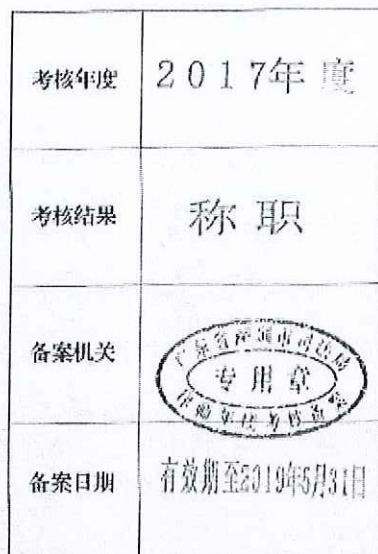 考核年度 2017年度
考核结果 称职
备案机关
广东省深圳市司法局
专用章
备案日期 有效期至2019年5月31日